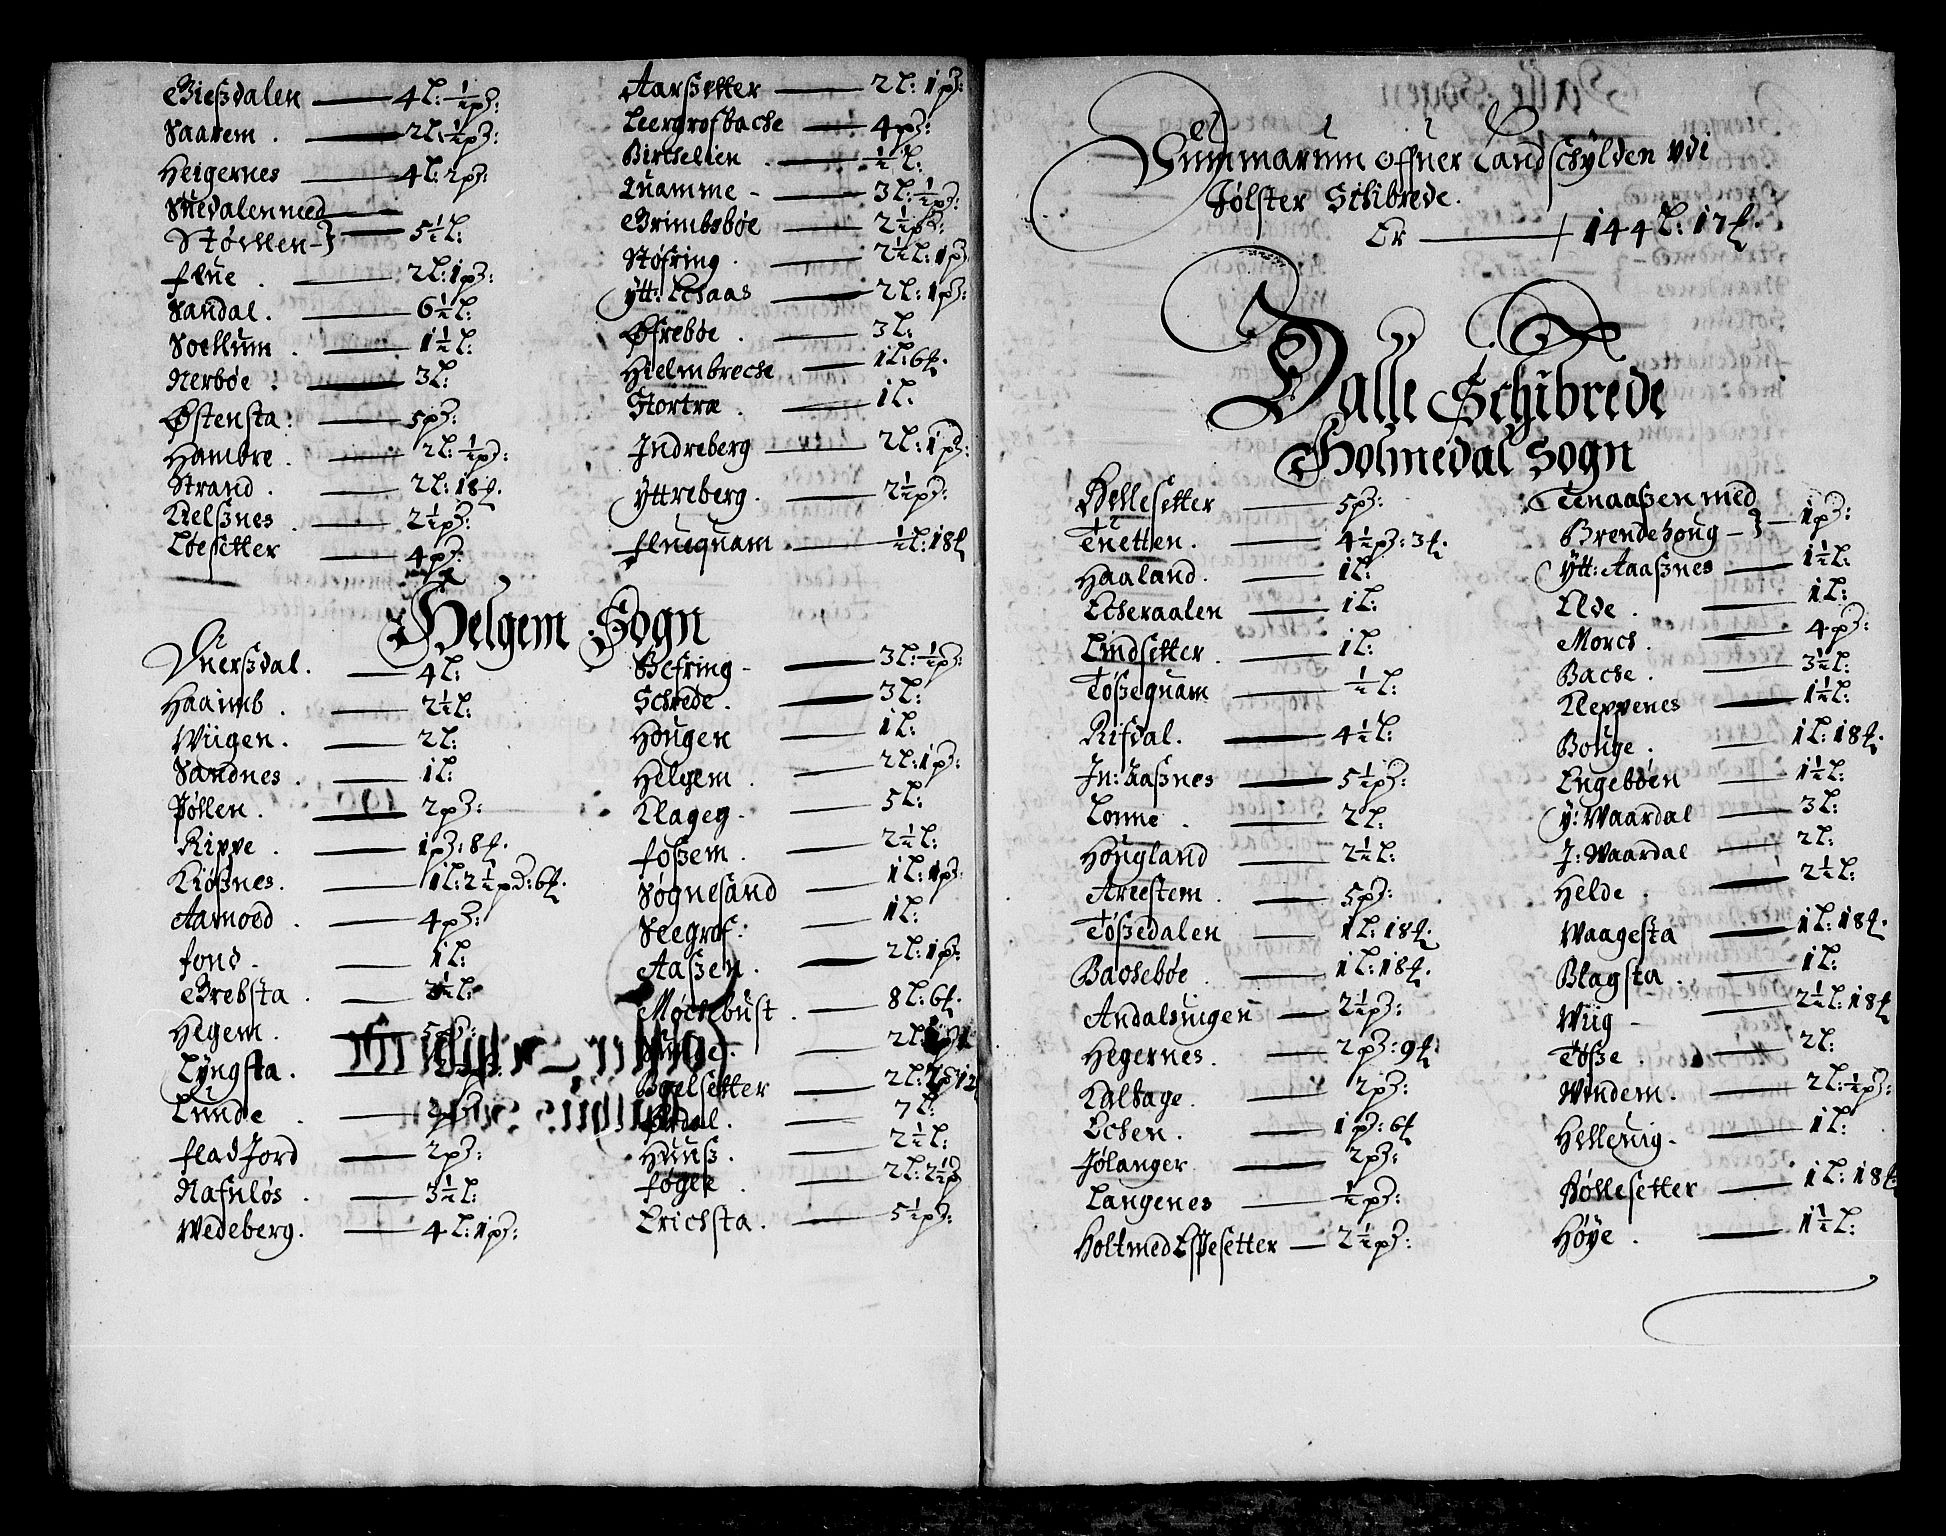 Giesdalen — 4 L: ½ pʒ:
Saarem . — 2 L: ½ pʒ:
Heigernes — 4 L: 2 pʒ:
Suedalen med
Støvllen — 5½ L:
flue . — 2 L: 1 pʒ:
Sandal . — 6½ L:
Soellum . — 1½ L:
Nerbøe . — 3 L:
Østensta: — 5 pʒ:
Hambre . — 2 L: ½ pʒ:
Strand . — 2 L: 18 ſ.
Kelßnes . — 2½ pʒ:
Løesetter — 4 pʒ:
Aarßetter — 2 L: 1 pʒ:
Leergrofbache — 4 pʒ:
Birchelien . — ½ L:
Quamme — 3 L: ½ pʒ:
Grimbsbøe — 2½ pʒ:
Støfring . — 2½ L: 1 pʒ
ytt: Echaas — 2 L: 1 pʒ:
Øfrebøe . — 3 L:
Hielmbreche — 1 L: 6 ſ.
Stortræ . — 1 L:
Indreberg — 2 L: 1 pʒ:
Yttreberg . — 2½ pʒ:
fluequam — ½ L: 18 ſ
Helgem Sogn
Huersdal . — 4 L:
Haaimb . — 2½ L:
Wiigen . — 2 L:
Sandnes . — 1 L:
Pøllen . — 2 pʒ:
Kippe . — 1 pʒ: 8 ſ.
Kiøßnes . — 1 L: 2½ pʒ: 6 ſ.
Aamoed . — 4 pʒ:
fond — 1 L:
Grebsta .
Hegem .
Lyngsta .
Lunde .
flad Jord — 2 pʒ:
Nafnløs . — 3½ L:
Wedeberg . — 4 L: 1 pʒ:
Befring — 3 L: ½ pʒ:
Schrede . — 3 L:
Hougen — 1 L:
Helgem . — 2 L: 1 pʒ:
Klageg — 5 L:
foßem . — 2½ L:
Søgnesand — 1 L: 1 pʒ:
Seegrof: — 1 L:
Aaßen . — 2 L: 1 pʒ:
Møchebust . — 8 L: 6 ſ.
Bøelsetter
— 7 L:
Huuß . — 2½ L:
føgle . — 2 L: 2½ pʒ
Erichsta . — 5½ pʒ:
Summarum offuer Landschylden udi
Jølster Schibrede .
Er — 144 L: 17 ſ.
Dalle Schibrede
Holmedal Sogn
Hellesetter — 5 pʒ:
Tuetten . — 4½ pʒ: 3 ſ.
Haaland . — 1 L:
Echeraalen — 1 L:
Lindsetter . — 1 L:
Tößequam — ½ L:
Rifdal . — 4½ L:
In: Aaßnes — 5½ pʒ:
Lonne . — 2 L:
Hougland — 2½ L:
Areestem . — 5 pʒ:
Tößedalen — 1 L: 18 ſ.
Bachebøe . — 1 L: 18 ſ.
Andalsuigen — 2½ pʒ:
Hegernes . — 2 pʒ: 9 ſ.
Kalbage . — 2 pʒ:
Echen . — 1 pʒ: 6 ſ
Jølanger — 2 pʒ:
Langenes — ½ pʒ:
Holt med Espesetter — 2½ pʒ:
Teenaaßen med
Brendehoug — 1 pʒ:
ytt: Aaaßnes — 1½ L:
Elde . — 1 L:
Morch . — 4 pʒ:
Bache . — 3½ L:
Kleppenes — 1½ L:
Bouge . — 1 L: 18 ſ.
Engebøen — 1½ L:
y: Waardal — 3 L:
J: Waardal — 2 L:
Helde . — 2½ L:
Waagesta — 1 L: 18 ſ.
Blagsta . — 1 L:
Wiig — 2½ L: 18 ſ
Töße . — 2 L:
Windem . — 2 L: ½ pʒ:
Helleuig — 1 L:
Høllesetter — 1 L: 18 ſ
Høye . — 1½ L: